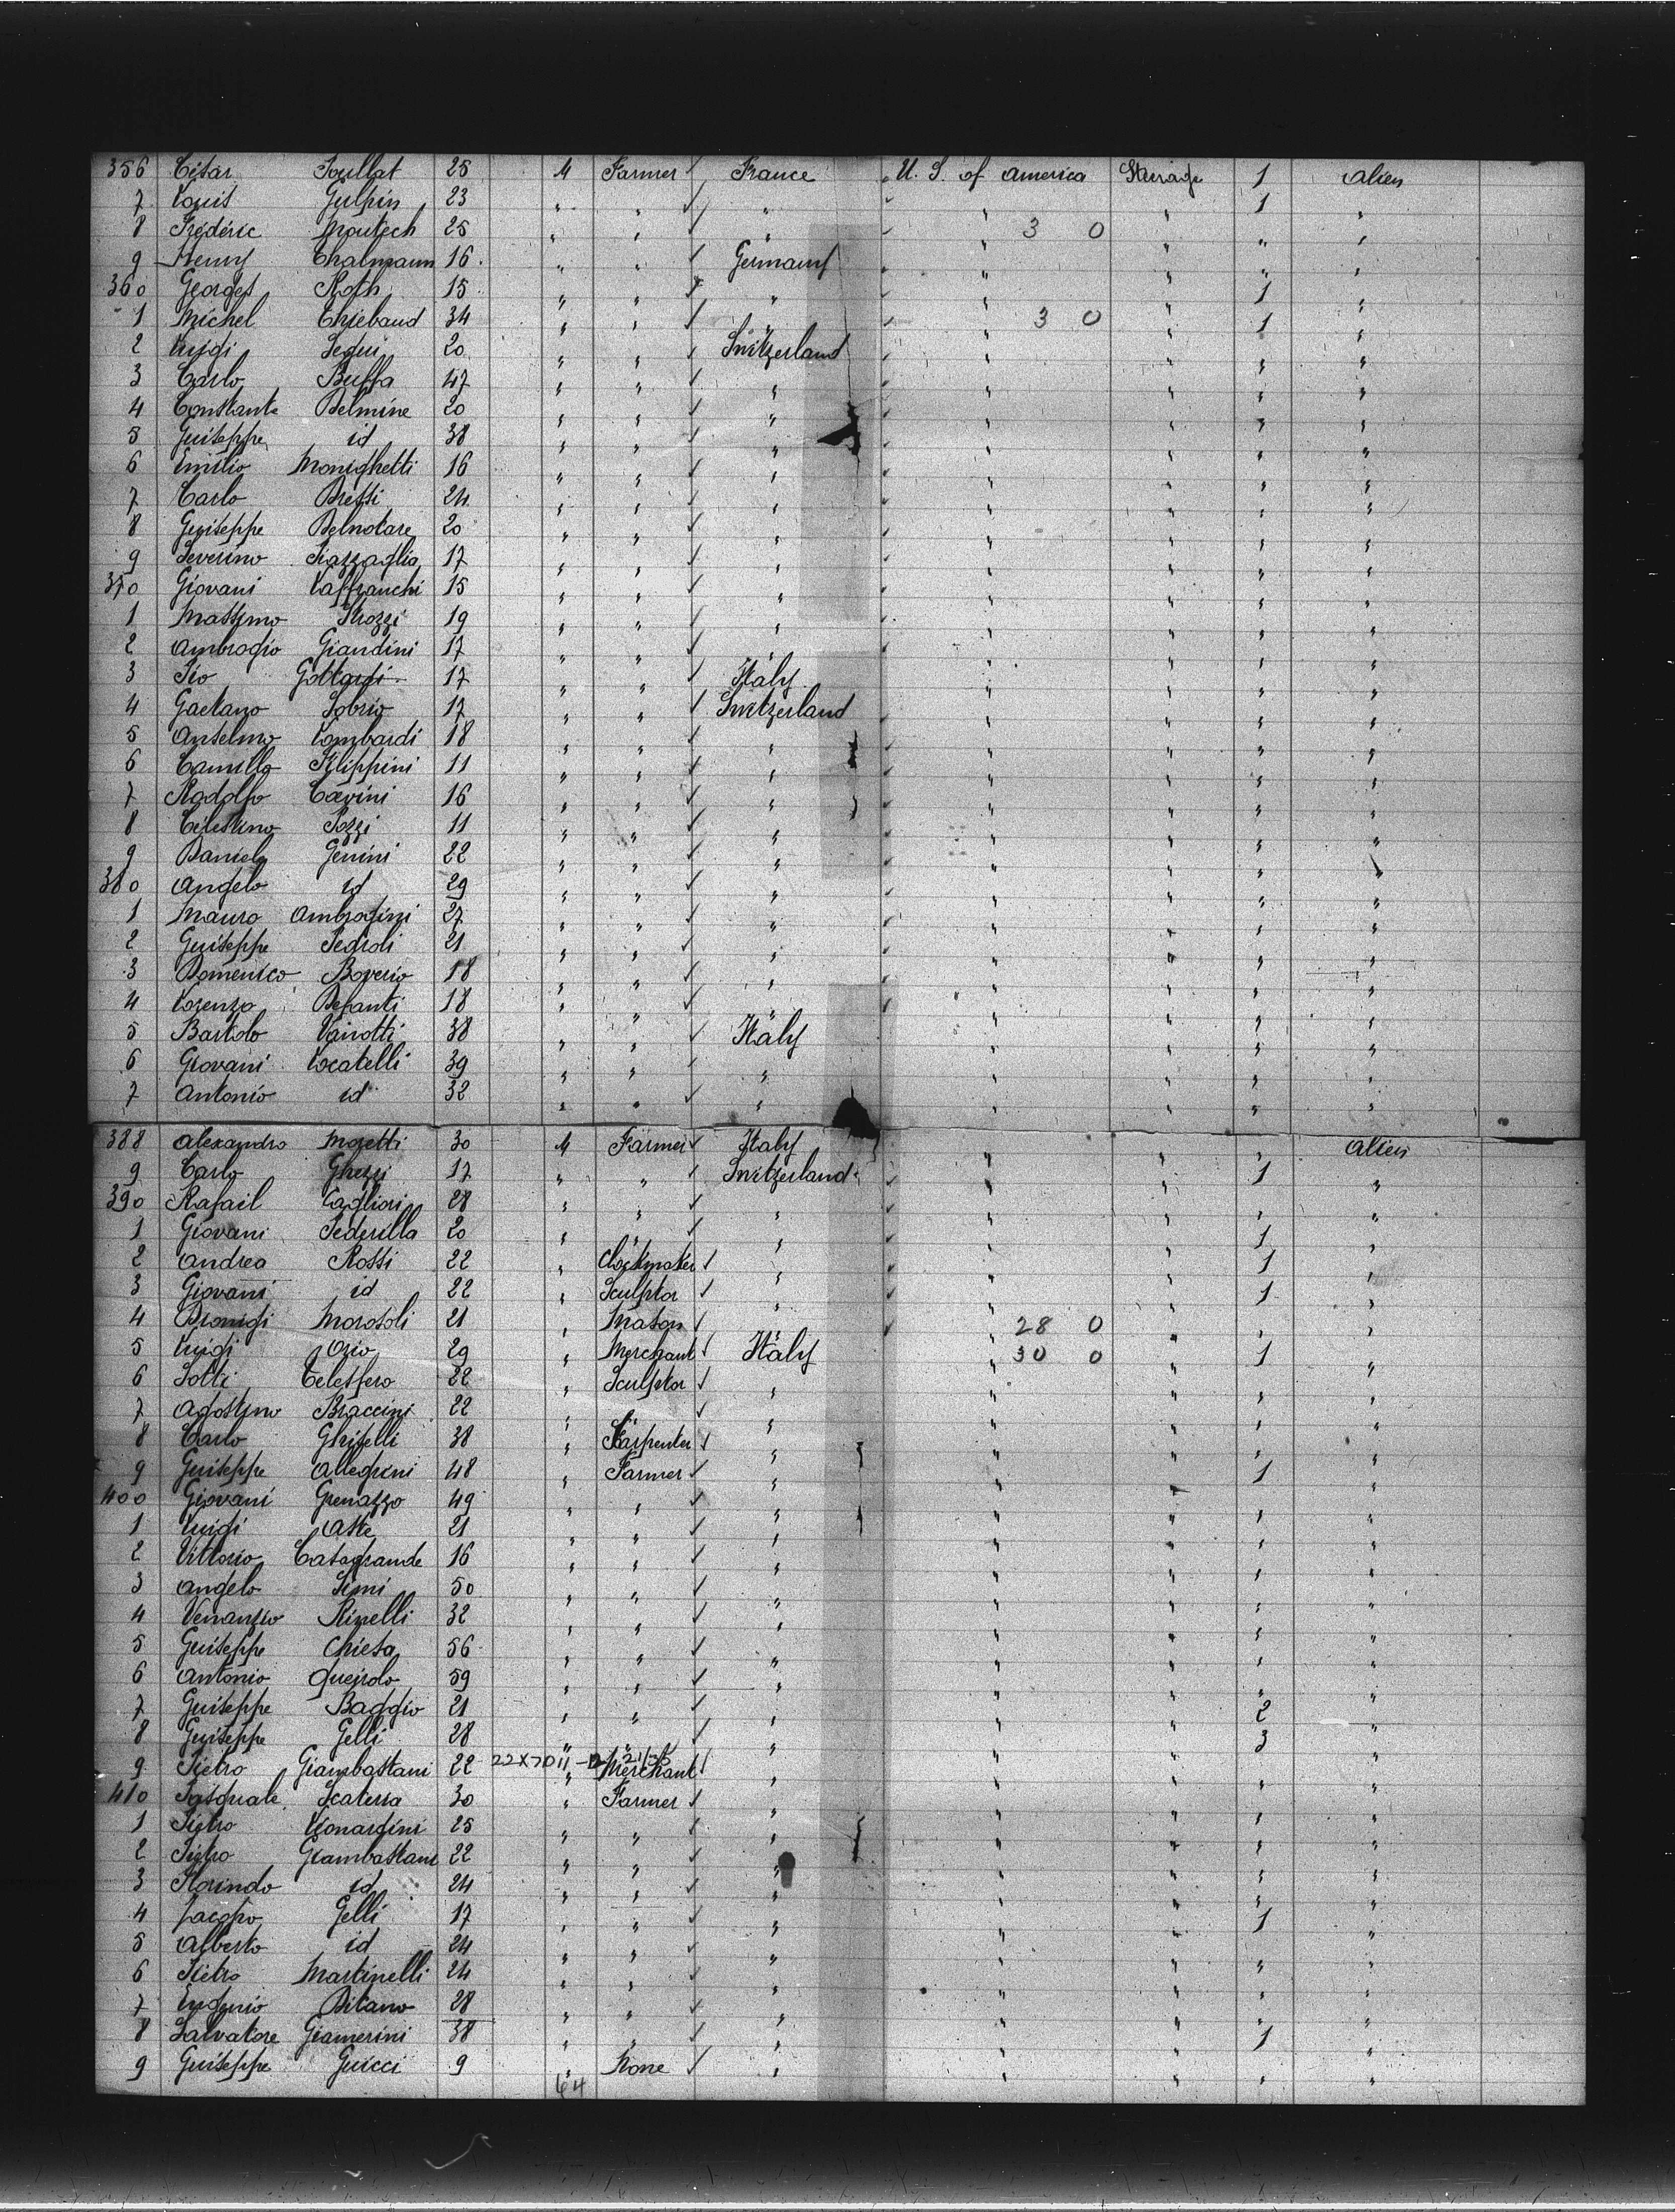 356 César Soullat 25 M Farmer ✓ France U. S. of America Steerage 1 Alien
7 Louis Gulpin 23 " " ✓ " " " 1 "
8 Frédéric Moutech 25 " " ✓ " " 3 0 " " "
9 Henry Thalmann 16 " " ✓ Germany " " " "
360 Georges Roth 15 " " ✓ " " " 1 "
1 Michel Thiebaud 34 " " ✓ " " 3 0 " 1 "
2 Luigi Segui 20 " " ✓ Switzerland " " " "
3 Carlo Buffa 47 " " ✓ " " " " "
4 Constante Delmine 20 " " ✓ " " " " "
5 Guiseppe id 38 " " ✓ " " " " "
6 Emilio Monighetti 16 " " ✓ " " " " "
7 Carlo Bressi 24 " " ✓ " " " " "
8 Guiseppe Delnotare 20 " " ✓ " " " " "
9 Severino Piazzaglia 17 " " ✓ " " " " "
370 Giovani Zaffranchi 15 " " ✓ " " " " "
1 Massimo Strozzi 19 " " ✓ " " " " "
2 Ambrogio Giandini 17 " " ✓ " " " " "
3 Pio Gottardi 17 " " ✓ Italy " " " "
4 Gaetano Sobrio 17 " " ✓ Switzerland " " " "
5 Anselmo Lombardi 18 " " ✓ " " " " "
6 Camillo Filippini 11 " " ✓ " " " " "
7 Rodolfo Cavini 16 " " ✓ " " " " "
8 Celestino Pozzi 11 " " ✓ " " " " "
9 Daniele Genini 22 " " ✓ " " " " "
380 Angelo id 29 " " ✓ " " " " "
1 Mauro Ambrosini 27 " " ✓ " " " " "
2 Guiseppe Pedroli 21 " " ✓ " " " " "
3 Domenico Boverio 18 " " ✓ " " " " "
4 Lorenzo Defanti 18 " " ✓ " " " " "
5 Bartolo Vanotti 38 " " ✓ Italy " " " "
6 Giovani Locatelli 39 " " ✓ " " " " "
7 Antonio id 32 " " ✓ " " " " "
388 Alexandro Mozetti 30 M Farmer ✓ Italy " " " Alien
9 Carlo Ghezzi 17 " " ✓ Switzerland " " 1 "
390 Rafail Cagliori 28 " " ✓ " " " " "
1 Giovani Pedesilla 20 " " ✓ " " " 1 "
2 Andrea Rossi 22 " Clockmaker ✓ " " " 1 "
3 Giovani id 22 " Sculptor ✓ " " " 1 "
4 Dionigi Morosoli 21 " Mason ✓ " " 28 0 " " "
5 Luigi Orio 29 " Merchant ✓ Italy " 30 0 " 1 "
6 Sotti Telesfero 22 " Sculptor ✓ " " " " "
7 Agostino Braccini 22 " " ✓ " " " " "
8 Carlo Ghiselli 38 " Carpenter ✓ " " " " "
9 Guiseppe Allegrini 48 " Farmer ✓ " " " 1 "
400 Giovani Grenazzo 49 " " ✓ " " " " "
1 Luigi Aste 21 " " ✓ " " " " "
2 Vittorio Casagrande 16 " " ✓ " " " " "
3 Angelo Simi 50 " " ✓ " " " " "
4 Venanzio Rinelli 32 " " ✓ " " " " "
5 Guiseppe Chiesa 56 " " ✓ " " " " "
6 Antonio Queirolo 59 " " ✓ " " " " "
7 Guiseppe Baggio 21 " " ✓ " " " 2 "
8 Guiseppe Gelli 28 " " ✓ " " " 3 "
9 Pietro Giambastiani 22 " Merchant ✓ " " " " "
410 Pasquale Scatena 30 " Farmer ✓ " " " " "
1 Pietro Leonardini 25 " " ✓ " " " " "
2 Pietro Giambastiani 22 " " ✓ " " " " "
3 Florindo id 24 " " ✓ " " " " "
4 Jacopo Gelli 17 " " ✓ " " " 1 "
5 Alberto id 24 " " ✓ " " " " "
6 Pietro Martinelli 24 " " ✓ " " " " "
7 Eugenio Ditano 28 " " ✓ " " " " "
8 Salvatore Giamerini 38 " " ✓ " " " 1 "
9 Guiseppe Guicci 9 " None ✓ " " " " "
64